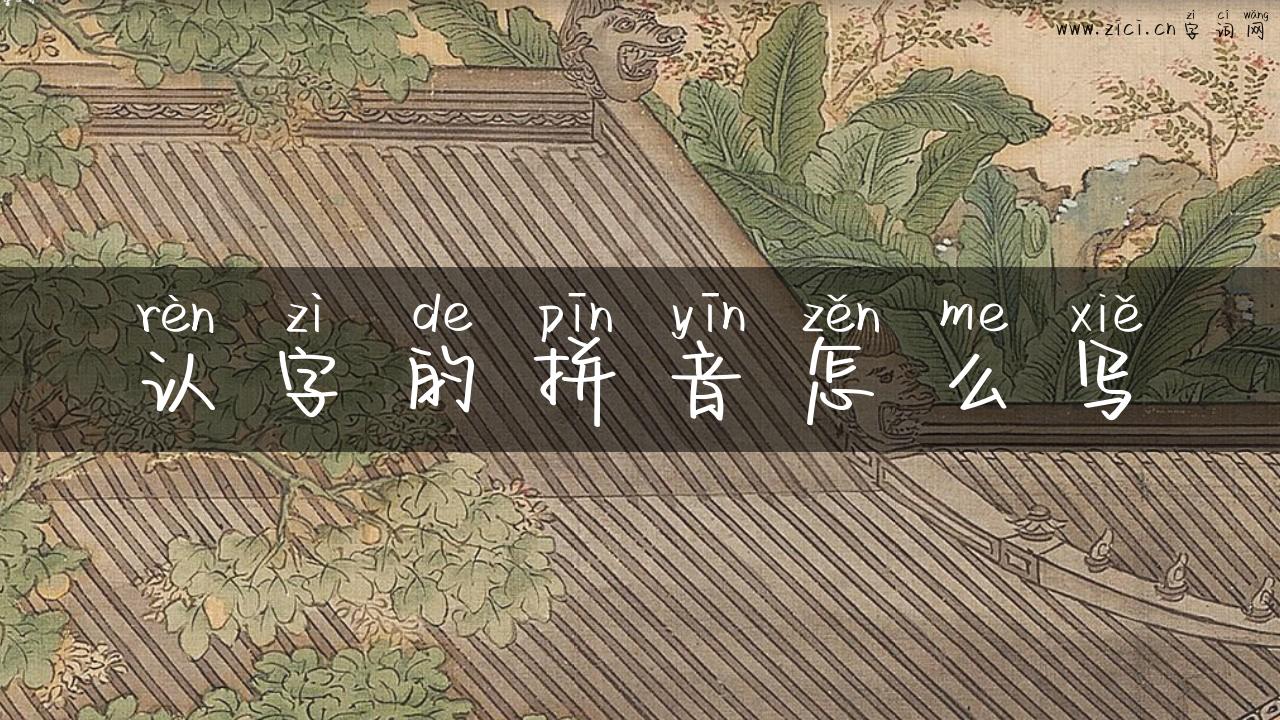 zì cí wǎng
www.zici.cn 字 词 网
rèn zì de pīn yīn zěn me xiě
认 字 的 拼 音 怎 么 写